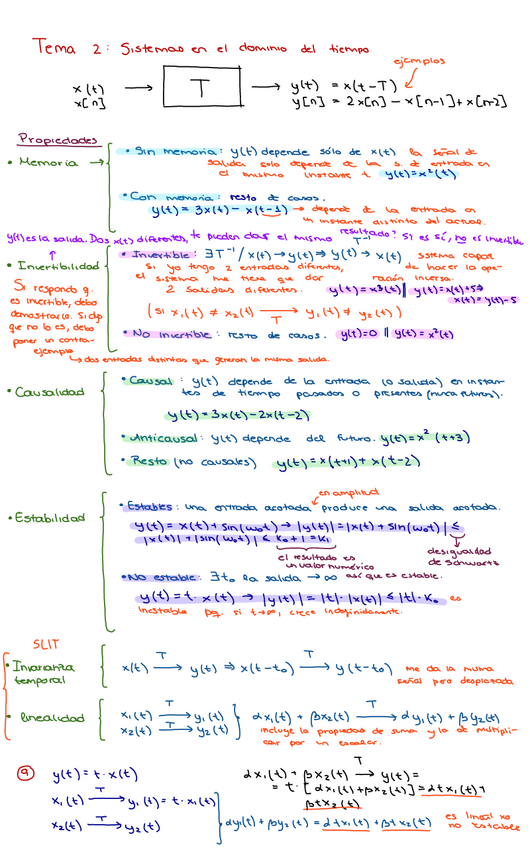 Tema 2: Sistemas en el dominio del tiempo
ejemplos
x(t) → T → y(t) = x(t-T)
x[n] y[n] = 2x[n] - x[n-1] + x[n-2]
Propiedades
• Memoria →
• Sin memoria: y(t) depende sólo de x(t) la señal de
salida solo depende de la s. de entrada en
el mismo instante t. y(t)=x²(t)
• Con memoria: resto de casos.
y(t) = 3x(t) - x(t-1) → depende de la entrada en
un instante distinto del actual.
y(t) es la salida. Dos x(t) diferentes, te pueden dar el mismo resultado? Si es sí, no es invertible
• Invertibilidad
Si respondo q.
es invertible, debo
demostrarlo. Si digo
que no lo es, debo
poner un contra-
ejemplo
• Invertible: ∃T⁻¹ / x(t) → y(t) ⇒ y(t) T⁻¹→ x(t) sistema capaz
de hacer la ope-
ración inversa.
si yo tengo 2 entradas diferentes,
el sistema me tiene que dar
2 salidas diferentes. y(t)=x³(t) || y(t)=x(t)+5 ⇒
x(t)=y(t)-5
(si x₁(t) ≠ x₂(t) T→ y₁(t) ≠ y₂(t))
• No invertible: resto de casos. y(t)=0 || y(t)=x²(t)
↳ dos entradas distintas que generan la misma salida.
• Causalidad
• Causal: y(t) depende de la entrada (o salida) en instan-
tes de tiempo pasados o presentes (nunca futuros).
y(t) = 3x(t) - 2x(t-2)
• Anticausal: y(t) depende del futuro. y(t)=x²(t+3)
• Resto (no causales) y(t)=x(t+1)+x(t-2)
• Estabilidad
en amplitud
• Estables: una entrada acotada produce una salida acotada.
y(t) = x(t) + sin(ω₀t) → |y(t)| = |x(t) + sin(ω₀t)| ≤
|x(t)| + |sin(ω₀t)| ≤ K₀ + 1 = K₁
el resultado es
un valor numérico
así que es estable.
desigualdad
de Schwartz
• No estable: ∃t₀ la salida → ∞
y(t) = t · x(t) → |y(t)| = |t| · |x(t)| ≤ |t| · K₀ es
inestable pq. si t→∞, crece indefinidamente.
SLIT
• Invarianza
temporal
x(t) T→ y(t) ⇒ x(t-t₀) T→ y(t-t₀) me da la misma
señal pero desplazada
• linealidad
x₁(t) T→ y₁(t)
x₂(t) T→ y₂(t)
αx₁(t) + βx₂(t) T→ αy₁(t) + βy₂(t)
incluye la propiedad de suma y la de multipli-
car por un escalar.
(9) y(t) = t · x(t)
x₁(t) T→ y₁(t) = t · x₁(t)
x₂(t) T→ y₂(t)
αx₁(t) + βx₂(t) T→ y(t) =
= t · [αx₁(t) + βx₂(t)] = αtx₁(t) +
βtx₂(t)
αy₁(t) + βy₂(t) = αtx₁(t) + βtx₂(t)
es lineal